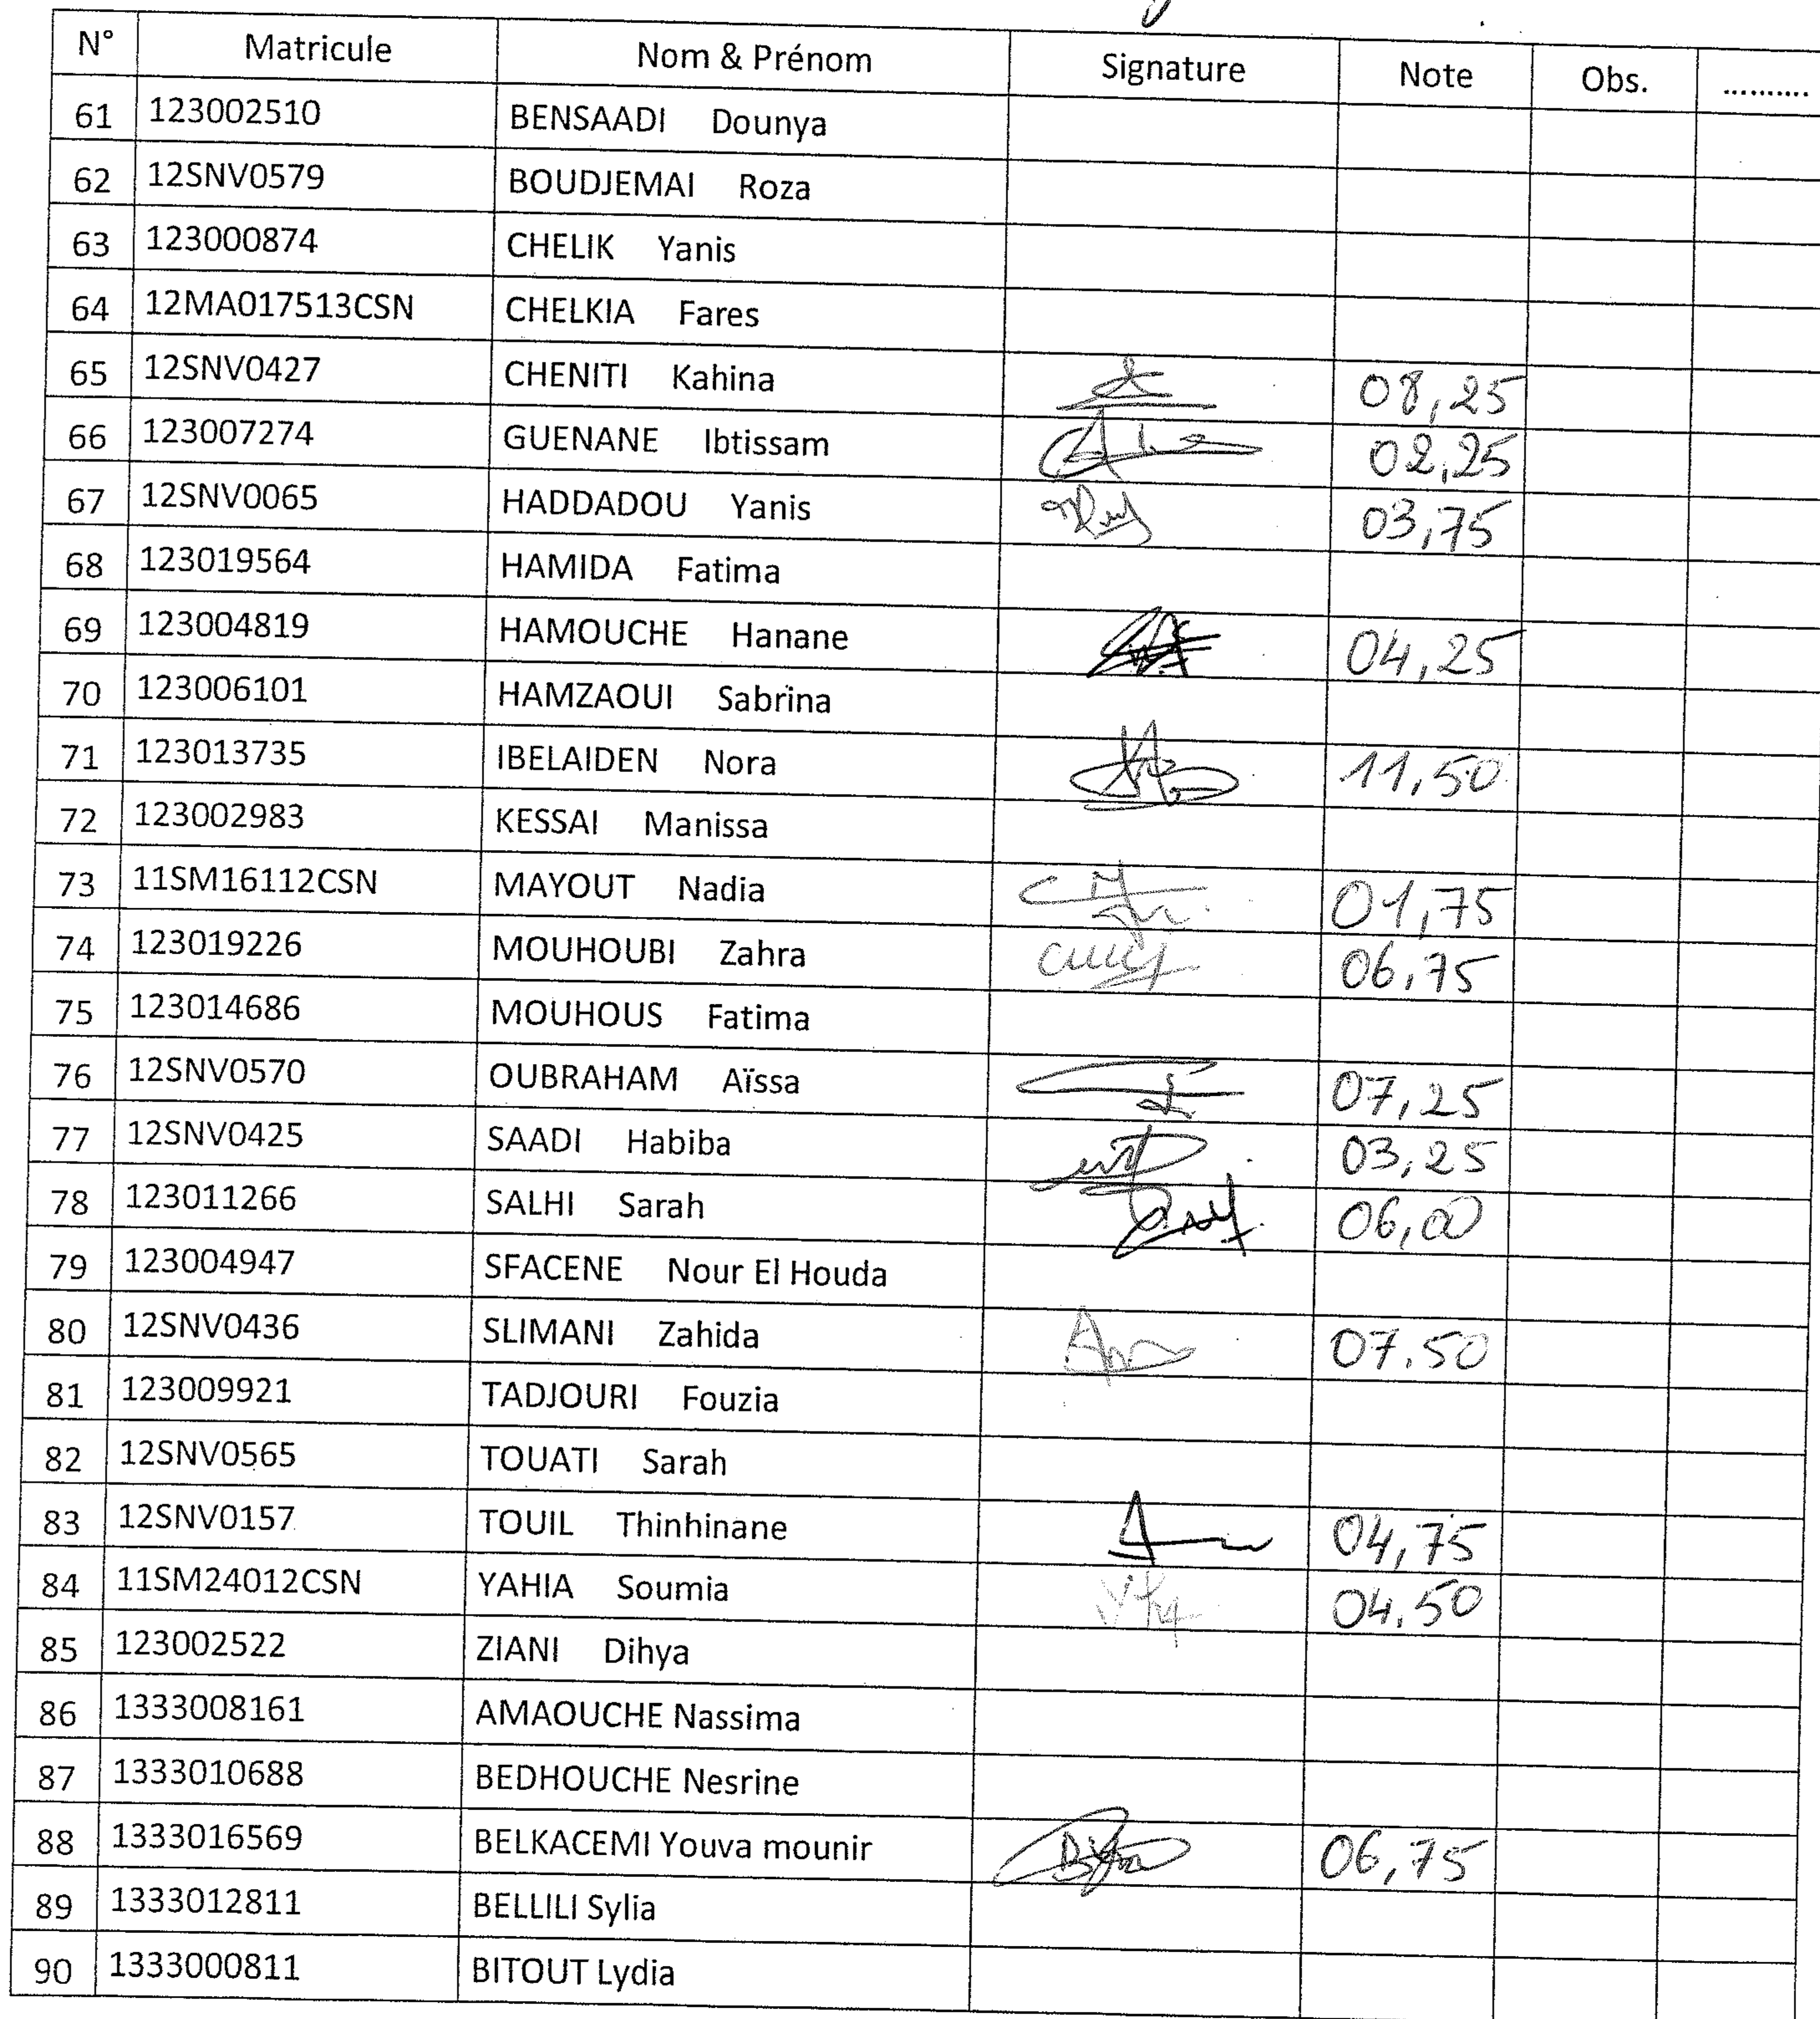 N° Matricule Nom & Prénom Signature Note Obs. ..........
61 123002510 BENSAADI Dounya
62 12SNV0579 BOUDJEMAI Roza
63 123000874 CHELIK Yanis
64 12MA017513CSN CHELKIA Fares
65 12SNV0427 CHENITI Kahina 08,25
66 123007274 GUENANE Ibtissam 02,25
67 12SNV0065 HADDADOU Yanis 03,75
68 123019564 HAMIDA Fatima
69 123004819 HAMOUCHE Hanane 04,25
70 123006101 HAMZAOUI Sabrina
71 123013735 IBELAIDEN Nora 11,50
72 123002983 KESSAI Manissa
73 11SM16112CSN MAYOUT Nadia 01,75
74 123019226 MOUHOUBI Zahra 06,75
75 123014686 MOUHOUS Fatima
76 12SNV0570 OUBRAHAM Aïssa 07,25
77 12SNV0425 SAADI Habiba 03,25
78 123011266 SALHI Sarah 06,00
79 123004947 SFACENE Nour El Houda
80 12SNV0436 SLIMANI Zahida 07.50
81 123009921 TADJOURI Fouzia
82 12SNV0565 TOUATI Sarah
83 12SNV0157 TOUIL Thinhinane 04,75
84 11SM24012CSN YAHIA Soumia 04.50
85 123002522 ZIANI Dihya
86 1333008161 AMAOUCHE Nassima
87 1333010688 BEDHOUCHE Nesrine
88 1333016569 BELKACEMI Youva mounir 06,75
89 1333012811 BELLILI Sylia
90 1333000811 BITOUT Lydia